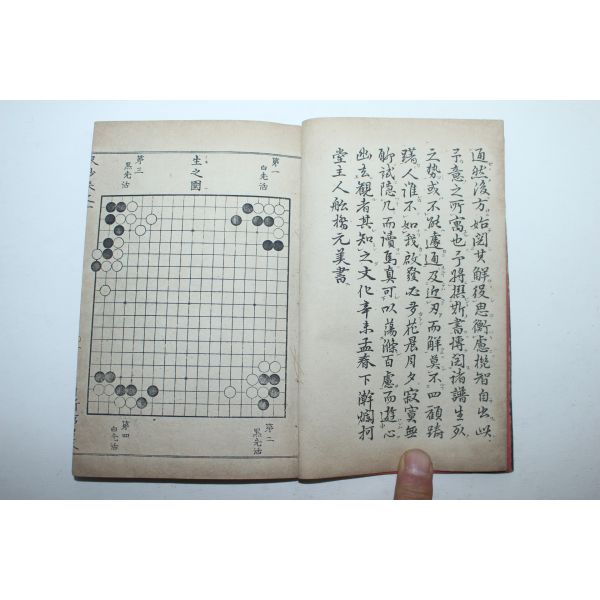 通然後方始閱其解役思衡慮機智自出此
予意之所寓也予將撰斯書博閱諸譜生死
之勢或不能處通及近刃而解莫不四顧躊
躇人誰不如我啟發必多花晨月夕寂寞無
聊試隱几而讀焉真可以蕩滌百慮而遊心
幽玄觀者其知之文化辛未孟春下澣爛柯
堂主人舩橋元美書
生之圖
第一
白先活
第二
黒先活
第三
黒先活
第四
白先活